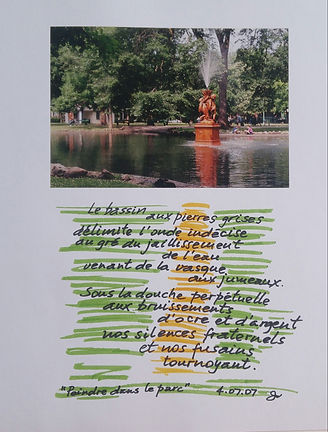 Le bassin
aux pierres grises
délimite l'onde indécise
au gré du jaillissement
de l'eau
venant de la vasque
aux jumeaux.
Sous la douche perpétuelle
aux bruissements
d'ocre et d'argent
nos silences fraternels
et nos fusains
tournoyant.
"Peindre dans le parc" 4.07.07